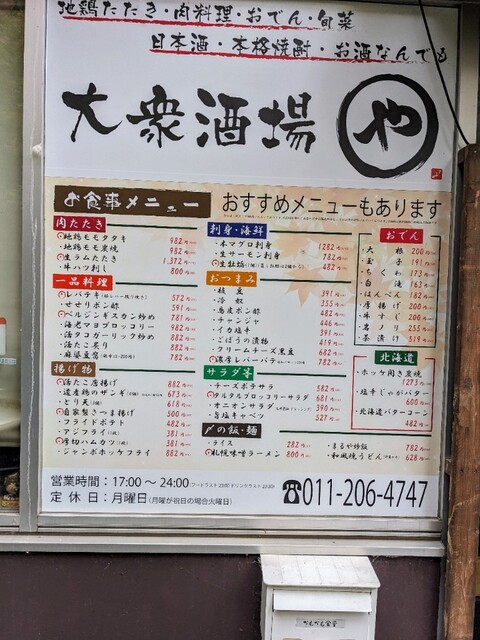 地鶏たたき・肉料理・おでん・旬菜
日本酒・本格焼酎・お酒なんでも
大衆酒場 や
お食事メニュー おすすめメニューもあります
肉たたき
地鶏モモタタキ 982
地鶏モモ炭焼 982
生ラムたたき 1,372
牛ハツ刺し 800
一品料理
レバテキ 572
せせりポン酢 591
ベルジンギスカン炒め 781
海老マヨブロッコリー 982
活タコガーリック炒め 882
活たこ炙り 882
麻婆豆腐 782
揚げ物
活たこ唐揚げ 882
道産鶏のザンギ 673
とり天 618
自家製さつま揚げ 500
フライドポテト 482
アジフライ 381
厚切ハムカツ 381
ジャンボホッケフライ 882
刺身・海鮮
本マグロ刺身 1282
生サーモン刺身 782
生牡蠣 482
おつまみ
枝豆 391
冷奴 355
鳥皮ポン酢 482
チャンジャ 446
イカ塩辛 391
ごぼうの漬物 419
クリームチーズ黒豆 682
濃厚レバーパテ 682
サラダ等
チーズポテサラ 582
タルタルブロッコリーサラダ 681
オニオンサラダ 390
塩辛キャベツ 527
〆の飯・麺
ライス 282
札幌味噌ラーメン 800
まるや炒飯 782
和風焼うどん 628
おでん
大根 200
玉子 191
ちくわ 173
白滝 163
はんぺん 182
厚揚げ 200
牛すじ 200
岩ノリ 255
茶漬け 519
北海道
ホッケ開き炭焼
1273
塩辛じゃがバター
600
北海道バターコーン
482
営業時間：17:00～24:00
定休日：月曜日（月曜が祝日の場合火曜日）
☎011-206-4747